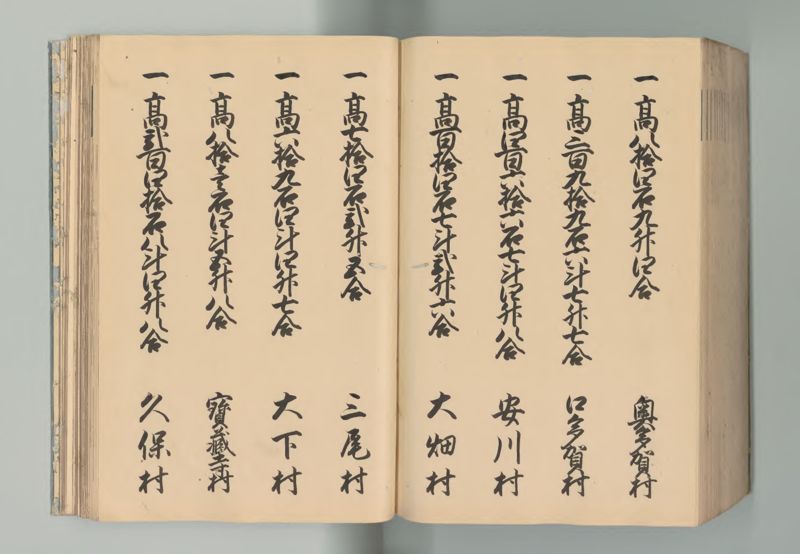 一高八拾四石九斗四合 奥多賀村
一高三百九拾九石六斗七升七合 口多賀村
一高四百六拾六石七斗四升八合 安川村
一高百拾四石七斗弐升六合 大畑村
一高七拾四石弐斗五合 三尾村
一高六拾九石四斗四升七合 大下村
一高八拾壱石四斗五升八合 寶蔵寺村
一高弐百四拾石八斗四升八合 久保村